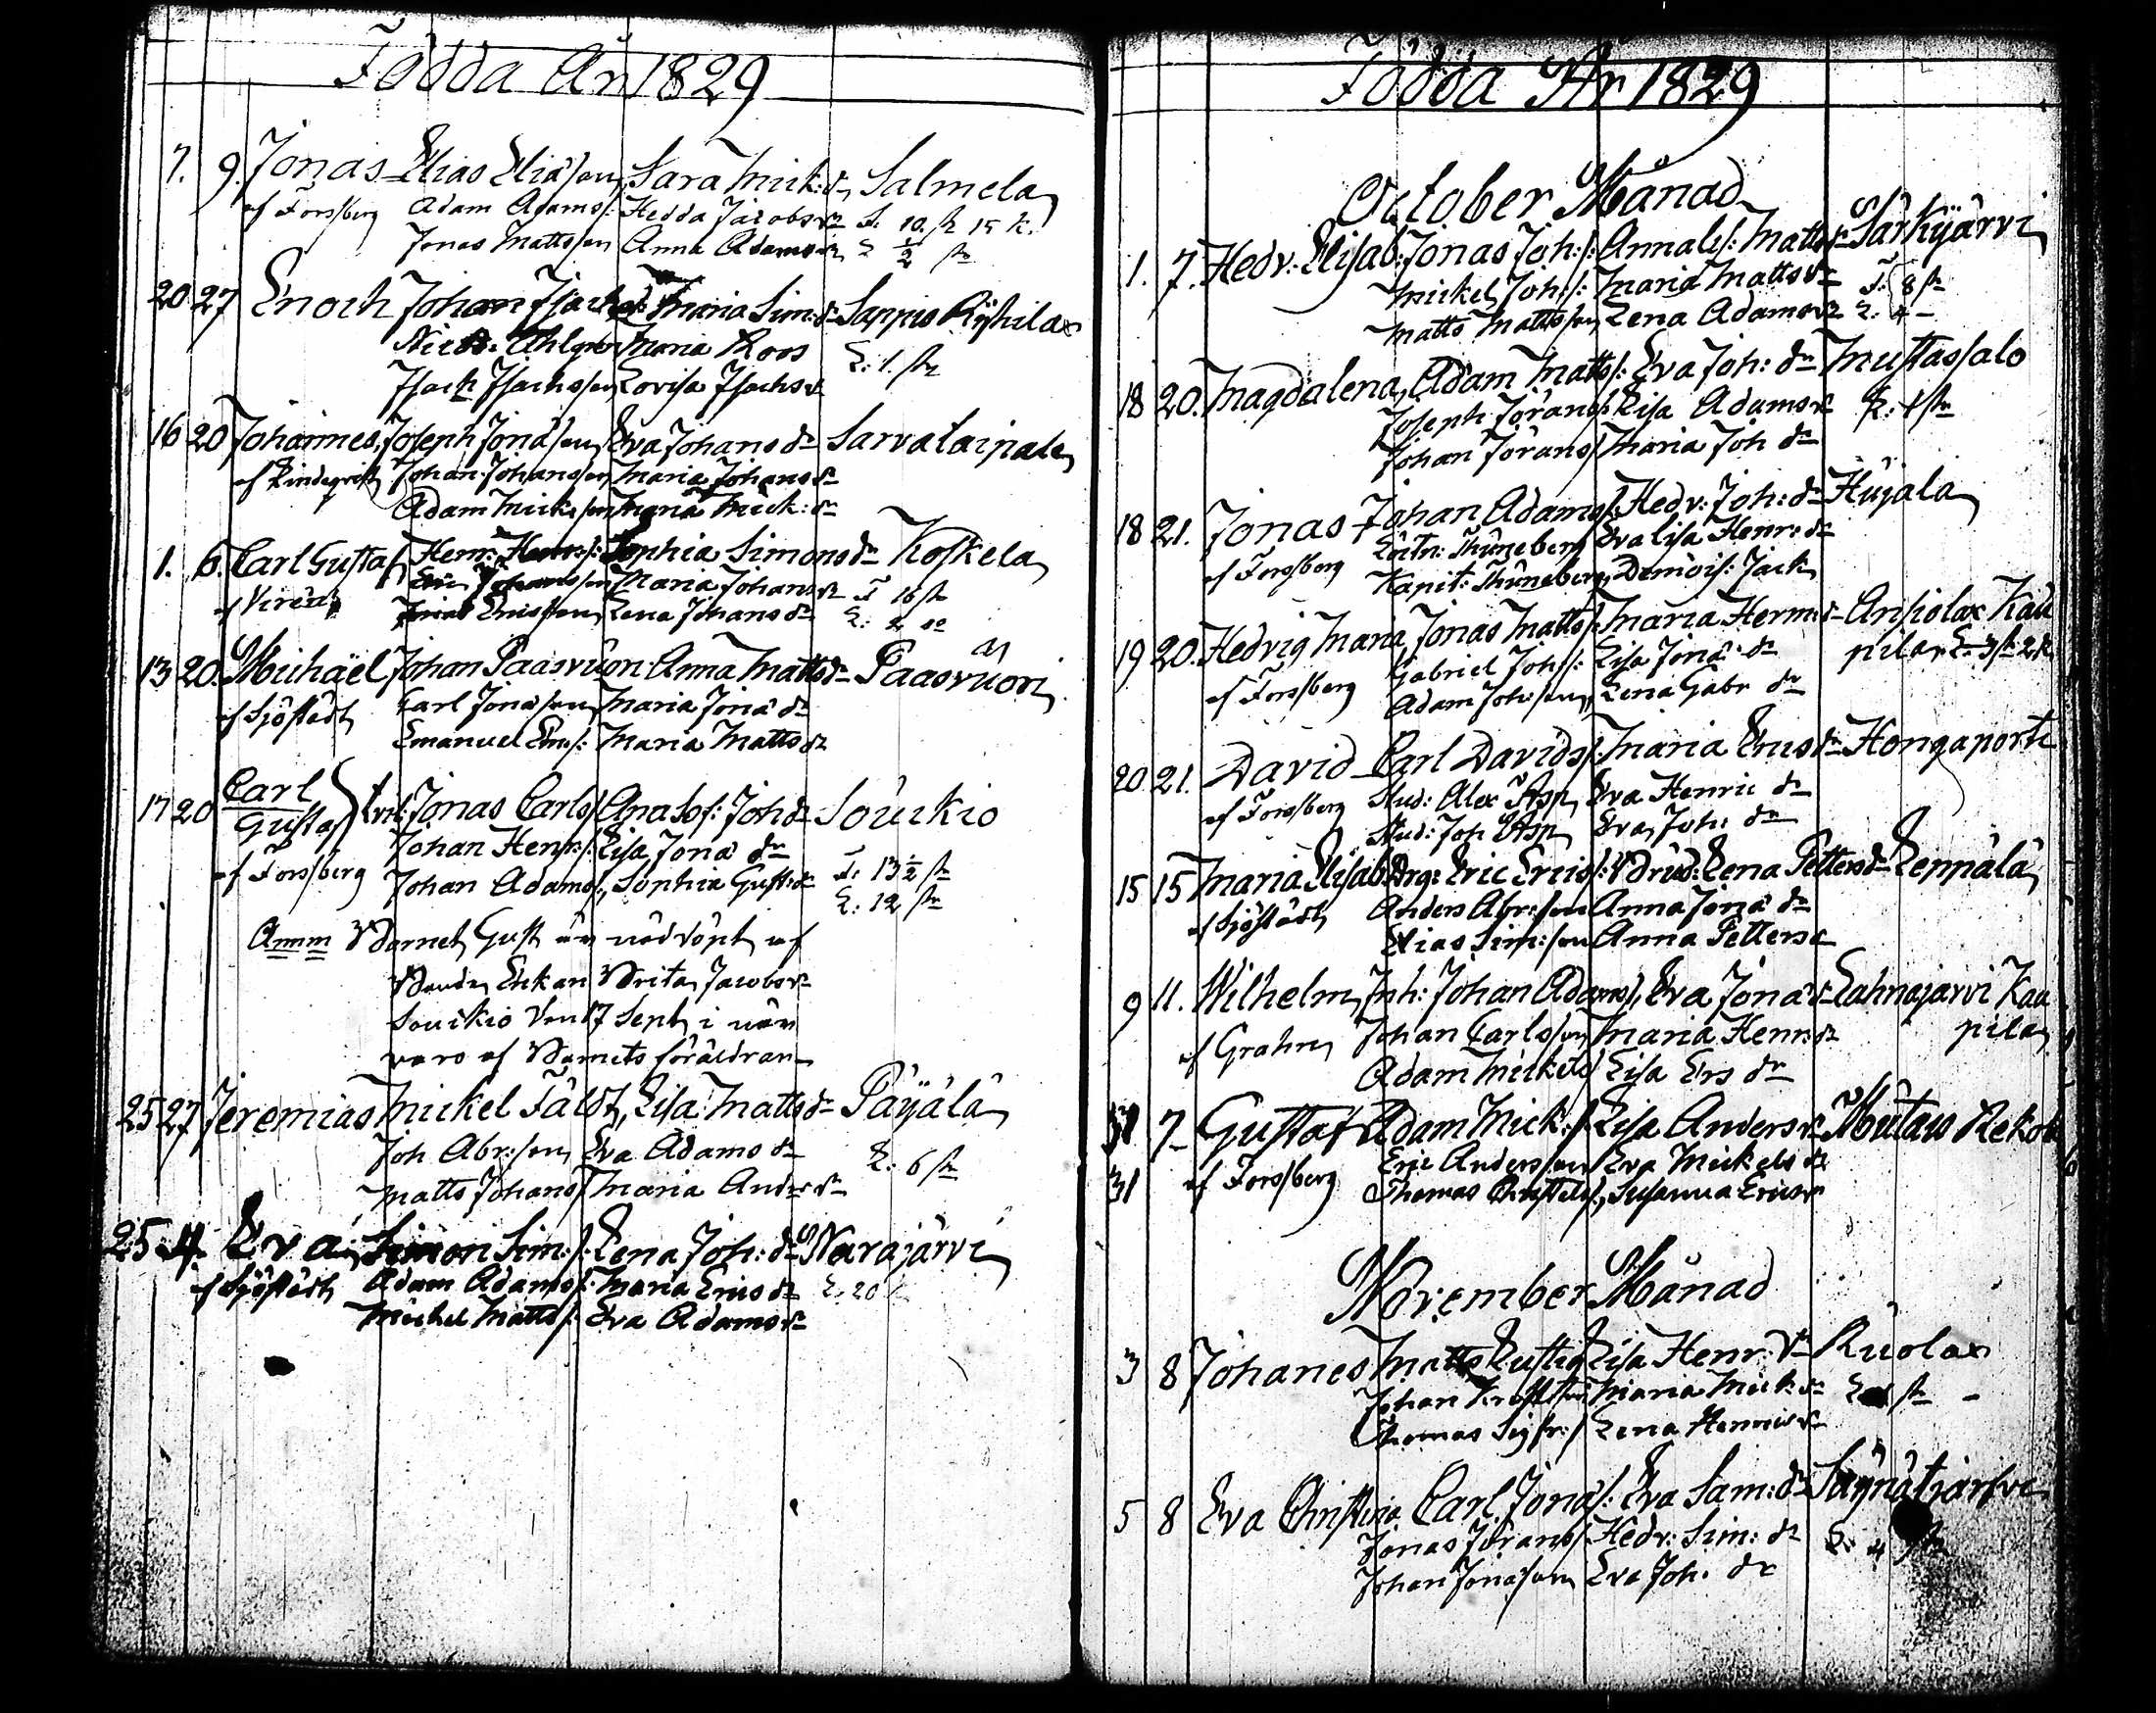 Födda År 1829
7. 9. Jonas Elias Eliasson Sara Mick: dr Salmela
af Forsberg Adam Adams: Hedda Jacobsdr T. 10. st 15 k.
Jonas Mattsson Anna Adamsdr L ½ st
20 27 Enoch Johan Isach Maria Sim: dr Sappis Ryhilax
Nic: Ahlgren Maria Roos L: 1. st
Isach Isachsson Lovisa Isachsd
16 20 Johannes Joseph Jonasson Eva Johansdr Sarvalaipale
af Lindeqvist Johan Johansson Maria Johansdr
Adam Micksson Maria Mick: dr
1. 6. Carl Gustaf Henr: Henrs: Sophia Simonsdr Koskela
af Viren Johansson Maria Johansdr T 16 st
Ericsson Lena Johansdr L: 2
13 20. Michaël Johan Paasvuon Anna Mattsdr Paasvuori
af Sjöstedt Carl Jonasson Maria Jonadr
Emanuel Em: Maria Mattsdr
17 20 Carl Gustaf Jonas Carls Ana Sof: Johdr Souckio
Johan Henrs: Lisa Jona dr T: 13½ st
af Forsberg Johan Adams Sophia Gust: dr L: 12 st
Anm Barnet Gust är nöddöpt af
Bonde Enkan Brita Jacobsdr
Souckio den 17 Sept i när
varo af Barnets föräldran
25 27 Jeremias Mickel Fäldt, Lisa Mattsdr Päyälä
Joh Abr:son Eva Adamsdr L: 6 st
Matts Johans Maria Andersdr
25 4 Eva Simon Sim: Lena Joh: dr Narajärvi
af Sjöstedt Adam Adams: Maria Ericsdr L. 20
Mickel Matts: Eva Adamsdr
Födda År 1829
October Månad
1. 7. Hedv: Elisab: Jonas Joh: Annalis: Mattsdr Särkijärvi
Mickel Joh: Maria Mattsdr T: 8 st
Matts Mattsson Lena Adamsdr L. 4 –
18 20. Magdalena Adam Matts: Eva Joh: dr Mustassalo
Joseph Jörans Lisa Adamsdr L: 1 st
Johan Jörans Maria Joh dr
18 21. Jonas Johan Adams Hedv: Joh: dr Hujala
Löitn: Thuneberg Eva Lisa Henr: dr
af Forsberg Kapit: Thuneberg Demois: Jack
19 20. Hedvig Maria Jonas Matts: Maria Herm: d Ansiolax Kau
Gabriel Joh: Lisa Jona dr pila L. 3 st 2 k.
af Forsberg Adam Joh:son Lena Gabr dr
20 21. David Carl Davids Maria Ericsdr Hongaporti
af Forsberg Stud: Alex Asp, Eva Henric dr
Stud: Joh Asp Eva Joh: dr
15 15 Maria Elisab Drg: Eric Erics: Lena Pettersdr Leppälä
af Sjöstedt Anders Abr:son Anna Jona dr
Elias Sim:son Anna Petters
9 11. Wilhelm Inh: Johan Adams Eva Jonadr Lahnajärvi Kau
af Grahn Johan Carlsson Maria Henr: dr pila
Adam Mickels Lisa Ers dr
31 7 Gustaf Adam Mick: Lisa Andersdr
31 af Forsberg Eric Andersson Eva Mickelsdr
Thomas Christels Susanna Ericsdr
November Månad
3 8 Johanes Matts Rustig Lisa Henr: dr Ruolax
Johan Maria Mick: dr
Thomas Sigfr: Lena Henricsdr
5 8 Eva Christina Carl Jonas: Eva Sam: dr
Jonas Jörans Hedv: Sim: dr L. 4
Johan Jonasson Eva Joh. dr